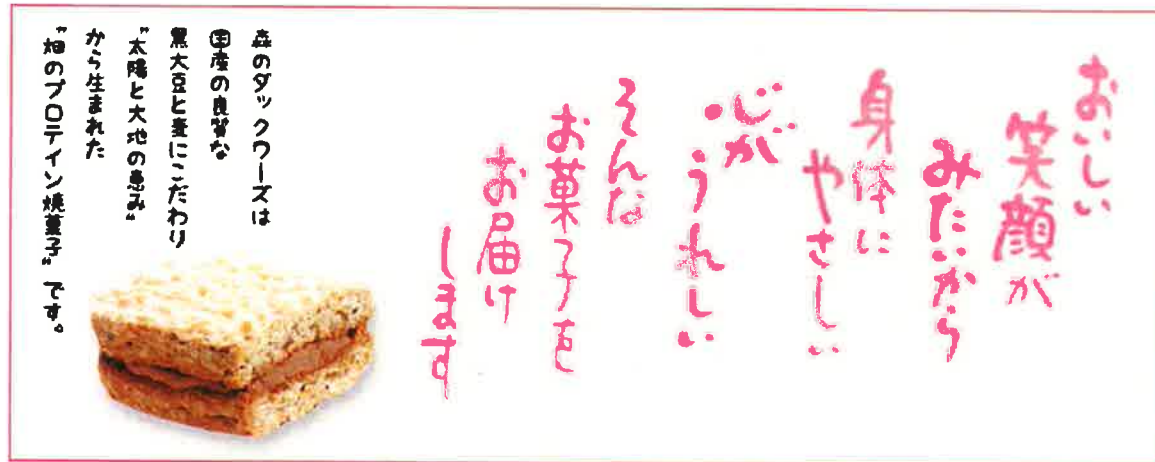 おいしい
笑顔が
みたいから
身体に
やさしい
心が
うれしい
そんな
お菓子を
お届け
します
森のダックワーズは
国産の良質な
黒大豆と麦にこだわり
"太陽と大地の恵み"
から生まれた
"畑のプロテイン焼菓子"です。